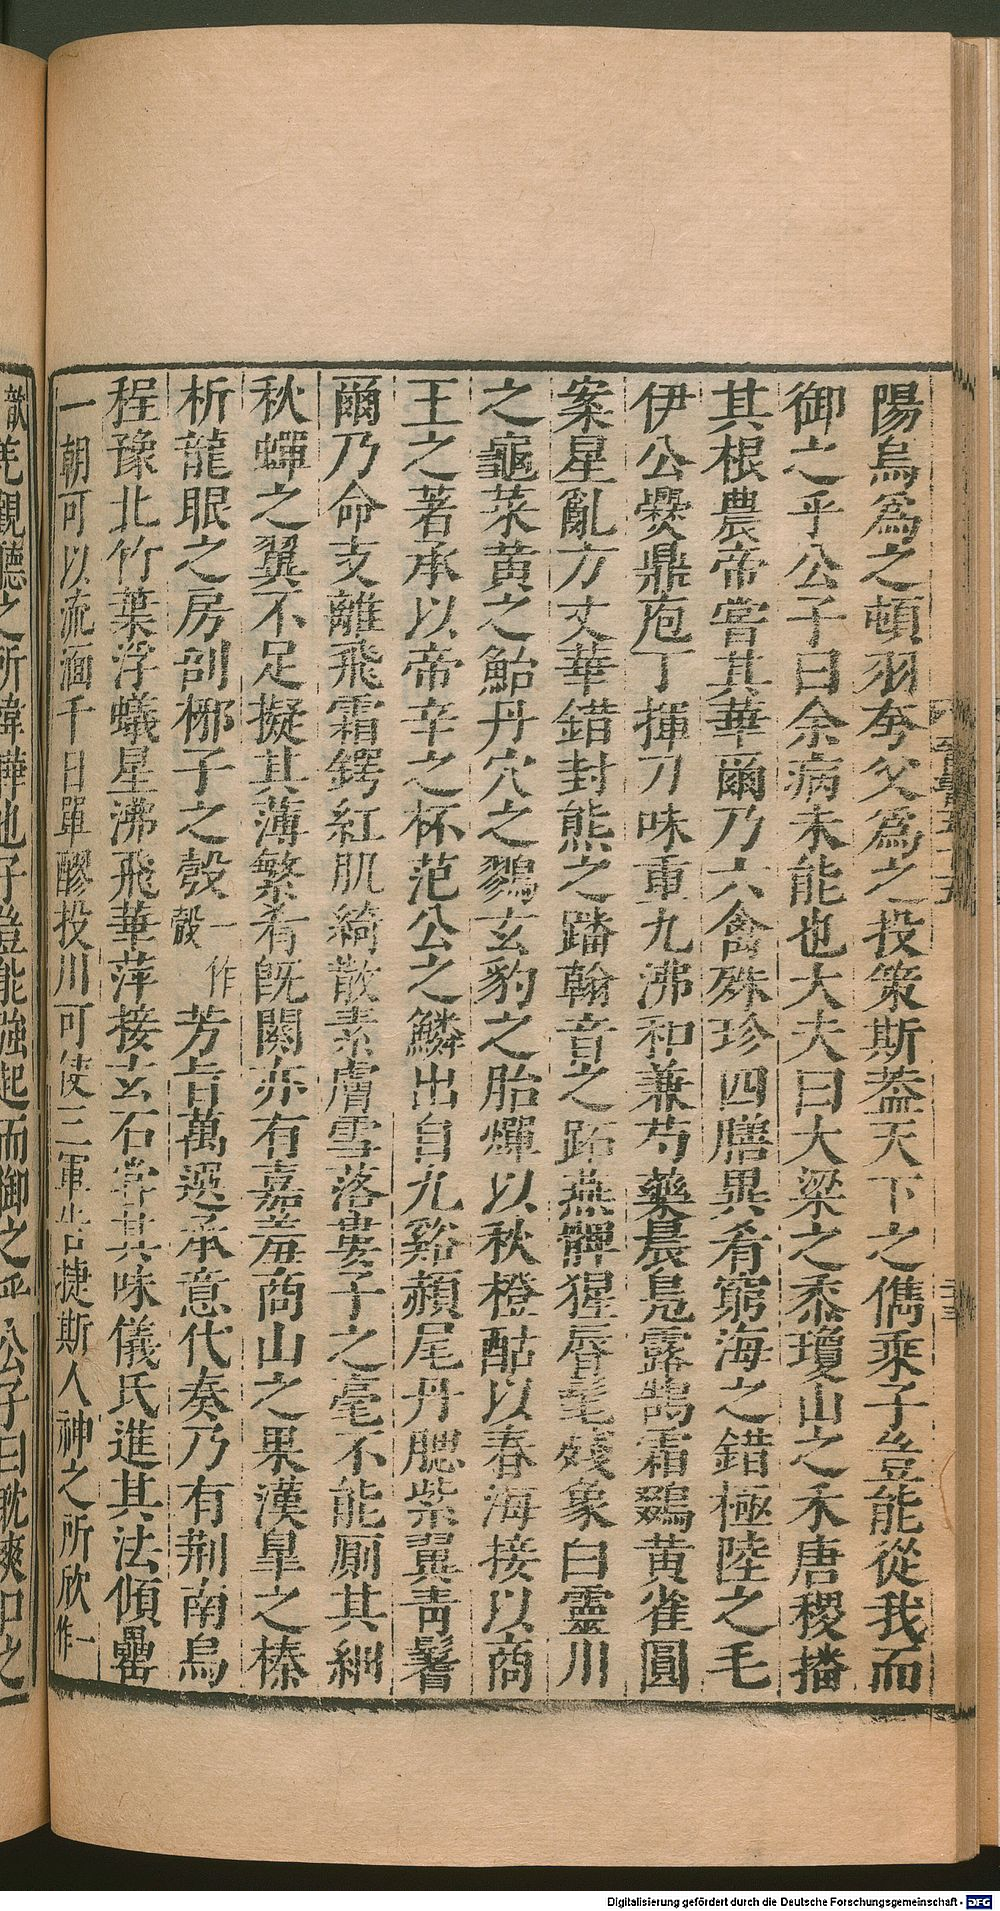 陽烏爲之頓羽夸父爲之投策斯葢天下之儁乘子豈能從我而
御之乎公子曰余病未能也大夫曰大梁之黍瓊山之禾唐稷播
其根農帝嘗其華爾乃六禽殊珍四膳異肴窮海之錯極陸之毛
伊公爨鼎庖丁揮刀味重九沸和兼芍藥晨鳧露鵠霜鵽黃雀圓
案星亂方丈華錯封熊之蹯翰音之跖燕髀猩脣髦殘象白靈川
之龜萊黃之鮐丹穴之鷚玄豹之胎燀以秋橙酤以春海接以商
王之著承以帝辛之杯范公之鱗出自九谿頳尾丹腮紫翼靑鬐
爾乃命支離飛霜鍔紅肌綺散素膚雪落婁子之毫不能厠其細
秋蟬之翼不足擬其薄繁肴旣闋亦有嘉羞商山之果漢皐之榛
析龍眼之房剖椰子之㱿一作殼芳旨萬選承意代奏乃有荆南烏
程豫北竹葉浮蟻星沸飛華萍接玄石嘗其味儀氏進其法傾罍
一朝可以流湎千日單醪投川可使三軍告捷斯人神之所欣一作
歆羌觀聽之所煒曄也子豈能强起而御之乎公子曰耽爽口之
Digitalisierung gefördert durch die Deutsche Forschungsgemeinschaft - DFG